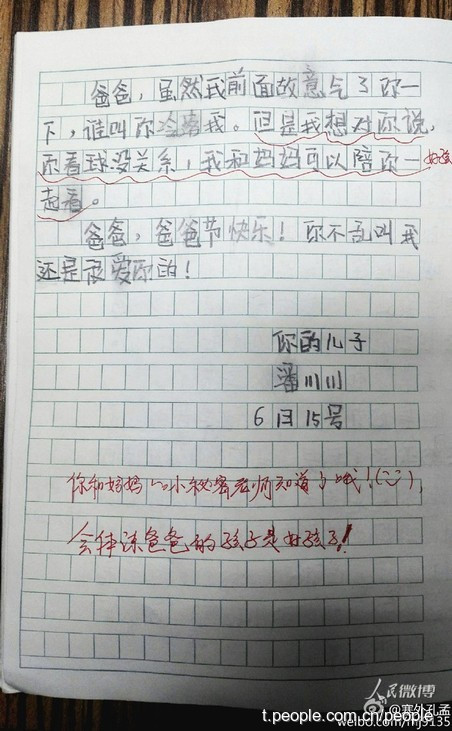 爸爸，虽然我前面故意气了你一
下，谁叫你冷落我。但是我想对你说，
你看球没关系，我和妈妈可以陪你一
起看。
爸爸，爸爸节快乐！你不乱叫我
还是很爱你的！
你的儿子
潘川川
6月15号
你和妈妈的小秘密老师知道了哦！
会体谅爸爸的孩子是好孩子！
人民微博
@塞外孔孟
t.people.com.cn/people
weibo.com/mj9135